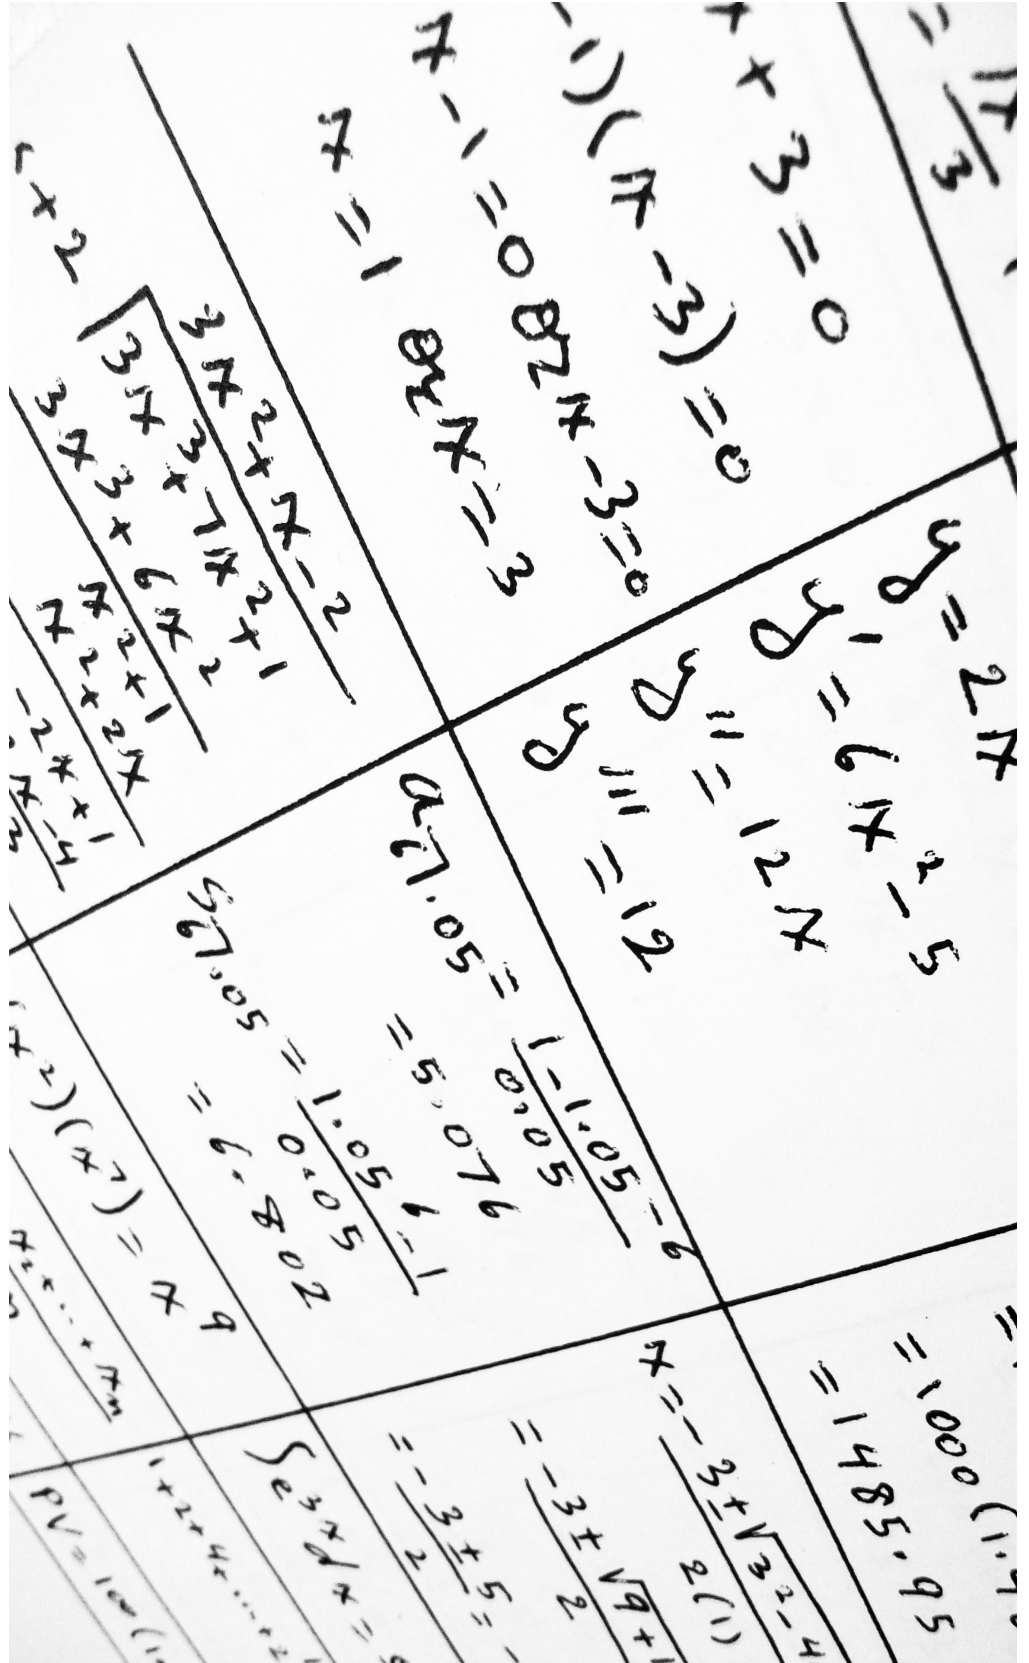 = x/3
x + 3 = 0
-1)(x-3) = 0
x-1=0 or x-3=0
x=1 or x=3
3x²+x-2
x+2 √3x³+7x²+1
3x³+6x²
x²+1
x²+2x
-2x+1
y = 2x
y' = 6x²-5
y'' = 12x
y''' = 12
a6⌉.05 = 1-1.05-6/0.05
= 5.076
s6⌉.05 = 1.05 6-1/0.05
= 6.802
x²)(x⁷) = x⁹
x₂+...+xn
= 1000(1.
= 1485.95
x = -3±√3²-4/2(1)
= -3±√9+1/2
= -3±5/2 = -
∫e³ˣdx =
1+2+4+...+2
PV = 100(1